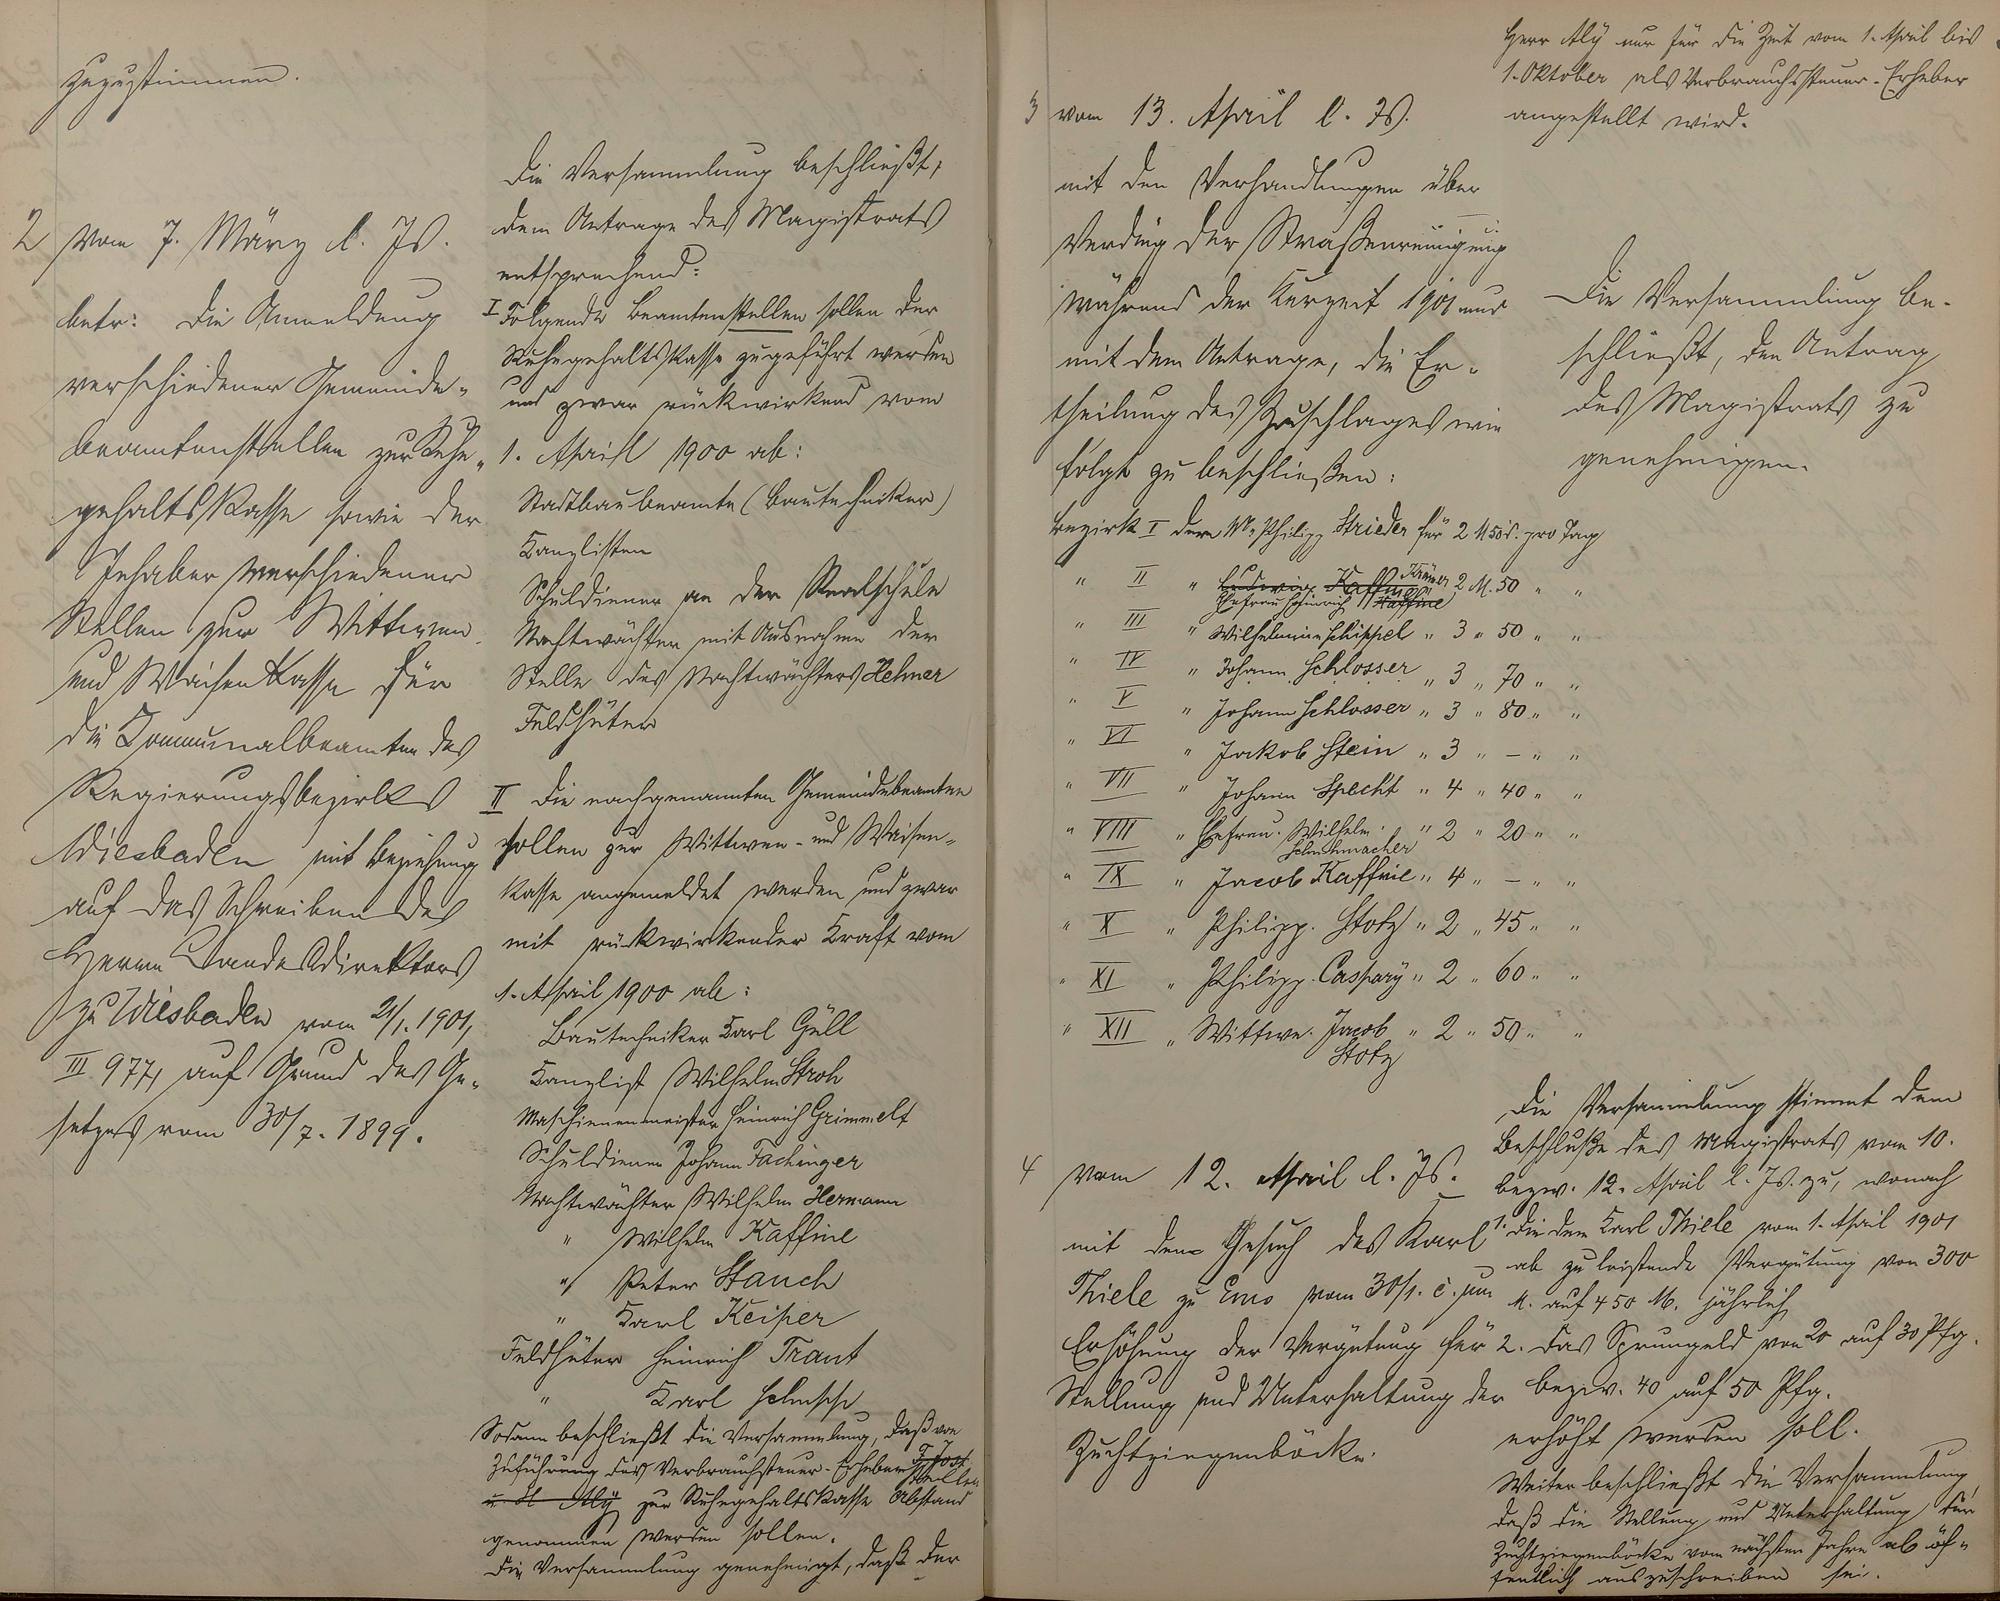 zuzustimmen.
2 vom 7. März l. Js.
betr: die Anmeldung
verschiedener Gemeinde-
beamtenstellen zur Ruhe-
gehaltskasse sowie der
Inhaber verschiedener
Stellen zur Wittwen
und Waisenkasse für
die Kommunalbeamten des
Regierungsbezirks
Wiesbaden mit Beziehung
auf das Schreiben des
Herrn Landesdirektors
zu Wiesbaden vom 21/1. 1901,
III 977, auf Grund des Ge-
setzes vom 30/7. 1899.
Die Versammlung beschließt,
dem Antrage des Magistrats
entsprechend:
I Folgende Beamtenstellen sollen der
Ruhegehaltskasse zugeführt werden
und zwar rückwirkend vom
1. April 1900 ab:
Stadtbaubeamte (Bautechniker)
Kanzlisten
Schuldiener an der Realschule
Nachtwächter mit Ausnahme der
Stelle des Nachtwächters Hehner
Feldhüter
II Die nachgenannten Gemeindebeamten
sollen zur Wittwen- und Waisen-
kasse angemeldet werden und zwar
mit rückwirkender Kraft vom
1. April 1900 ab:
Bautechniker Karl Güll
Kanzlist Wilhelm Stroh
Maschinenmeister Heinrich Grimmelt
Schuldiener Johann Fachinger
Nachtwächter Wilhelm Hermann
" Wilhelm Kaffine
" Peter Stauch
" Karl Keiper
Feldhüter Heinrich Traut
" Karl
Sodann beschließt die Versammlung, daß von
Zuführung des Verbrauchssteuer-Erheber F. Jost Stellen
u. H Aly zur Ruhegehaltskasse Abstand
genommen werden sollen.
Die Versammlung genehmigt, daß der
Herr Aly nur für die Zeit vom 1. April bis
1. Oktober als Verbrauchssteuer-Erheber
angestellt wird.
3 vom 13. April l. Js.
mit den Verhandlungen über
Verding der Straßenreinigung
während der Kurzeit 1901 und
mit dem Antrage, die Er-
theilung des Zuschlages wie
folgt zu beschließen:
Die Versammlung be-
schließt, den Antrag
des Magistrats zu
genehmigen.
Bezirk I dem Philipp Strieder für 2 M 50 pro Tag
" II " Ludwig Kaffine Krämer 2 M. 50 " "
Ehefrau Heinrich Kaffine
" III " Wilhelmine Schippel " 3 " 50 " "
" IV " Johann Schlosser " 3 " 70 " "
" V " Johann Schlosser " 3 " 80 " "
" VI " Jakob Stein " 3 " – " "
" VII " Johann Specht " 4 " 40 " "
" VIII " Ehefrau Wilhelm " 2 " 20 " "
Schuhmacher
" IX " Jacob Kaffine " 4 " – " "
" X " Philipp Stotz " 2 " 45 " "
" XI " Philipp Caspary " 2 " 60 " "
" XII " Wittwe Jacob " 2 " 50 " "
Stotz
4 vom 12. April l. Js.
mit dem Gesuch des Karl
Thiele zu Ems vom 30/1. c. um
Erhöhung der Vergütung für
Stellung und Unterhaltung der
Zuchtziegenböcke.
Die Versammlung stimmt dem
Beschluße des Magistrats vom 10.
bezw. 12. April l. Js. zu, wonach
1. die dem Karl Thiele vom 1. April 1901
ab zu leistende Vergütung von 300
M. auf 450 M. jährlich,
2. das Sprungeld von 20 auf 30 Pfg.
bezw. 40 auf 50 Pfg.
erhöht werden soll.
Weiter beschließt die Versammlung,
daß die Stellung und Unterhaltung der
Zuchtziegenböcke vom nächsten Jahre ab öf-
fentlich auszuschreiben sei.